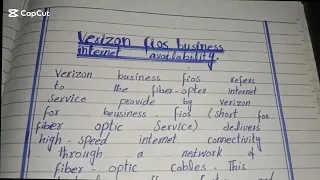 CapCut
Verizon fios business
internet availability.
Verizon business fios refers
to the fiber-opter internet
Service provide by verizon
for beusiness. fios (short for
fiber optic Service) delivers
high-speed internet connectivity
through a network of
fiber-optic cables. This